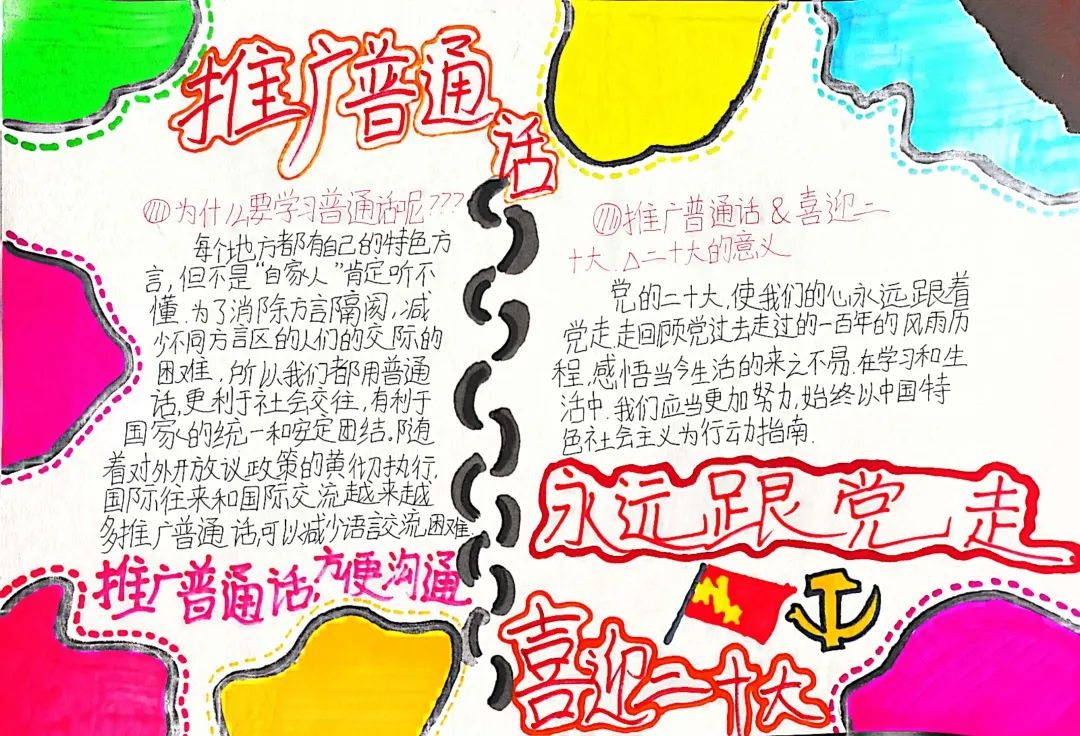 推广普通话
为什么要学习普通话呢???
每个地方都有自己的特色方
言,但不是“自家人”肯定听不
懂.为了消除方言隔阂,减
少不同方言区的人们的交际的
困难,所以我们都用普通
话,更利于社会交往,有利于
国家的统一和安定团结.随
着对外开放议政策的黄彻执行,
国际往来和国际交流越来越
多推广普通话,可以减少语言交流困难.
推广普通话,方便沟通
推广普通话&喜迎二
十大.△二十大的意义
党的二十大,使我们的心永远跟着
党走,走回顾党过去走过的一百年的风雨历
程,感悟当今生活的来之不易.在学习和生
活中.我们应当更加努力,始终以中国特
色社会主义为行动指南.
永远跟党走
喜迎二十大